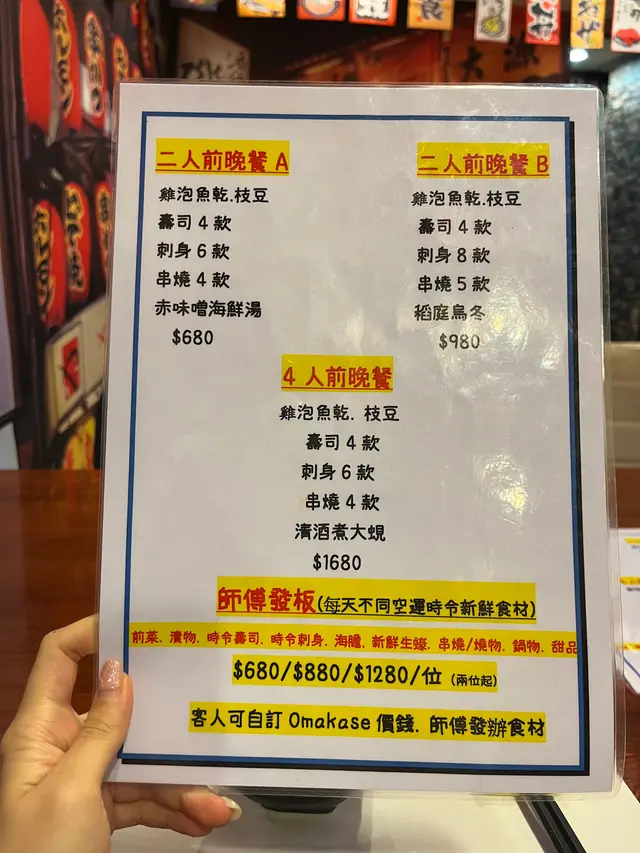 二人前晚餐 A
雞泡魚乾.枝豆
壽司 4 款
刺身 6 款
串燒 4 款
赤味噌海鮮湯
$680
二人前晚餐 B
雞泡魚乾.枝豆
壽司 4 款
刺身 8 款
串燒 5 款
稻庭烏冬
$980
4 人前晚餐
雞泡魚乾. 枝豆
壽司 4 款
刺身 6 款
串燒 4 款
清酒煮大蜆
$1680
師傅發板(每天不同空運時令新鮮食材)
前菜. 漬物. 時令壽司. 時令刺身. 海膽. 新鮮生蠔. 串燒/燒物. 鍋物. 甜品
$680/$880/$1280/位 (兩位起)
客人可自訂 Omakase 價錢. 師傅發辦食材